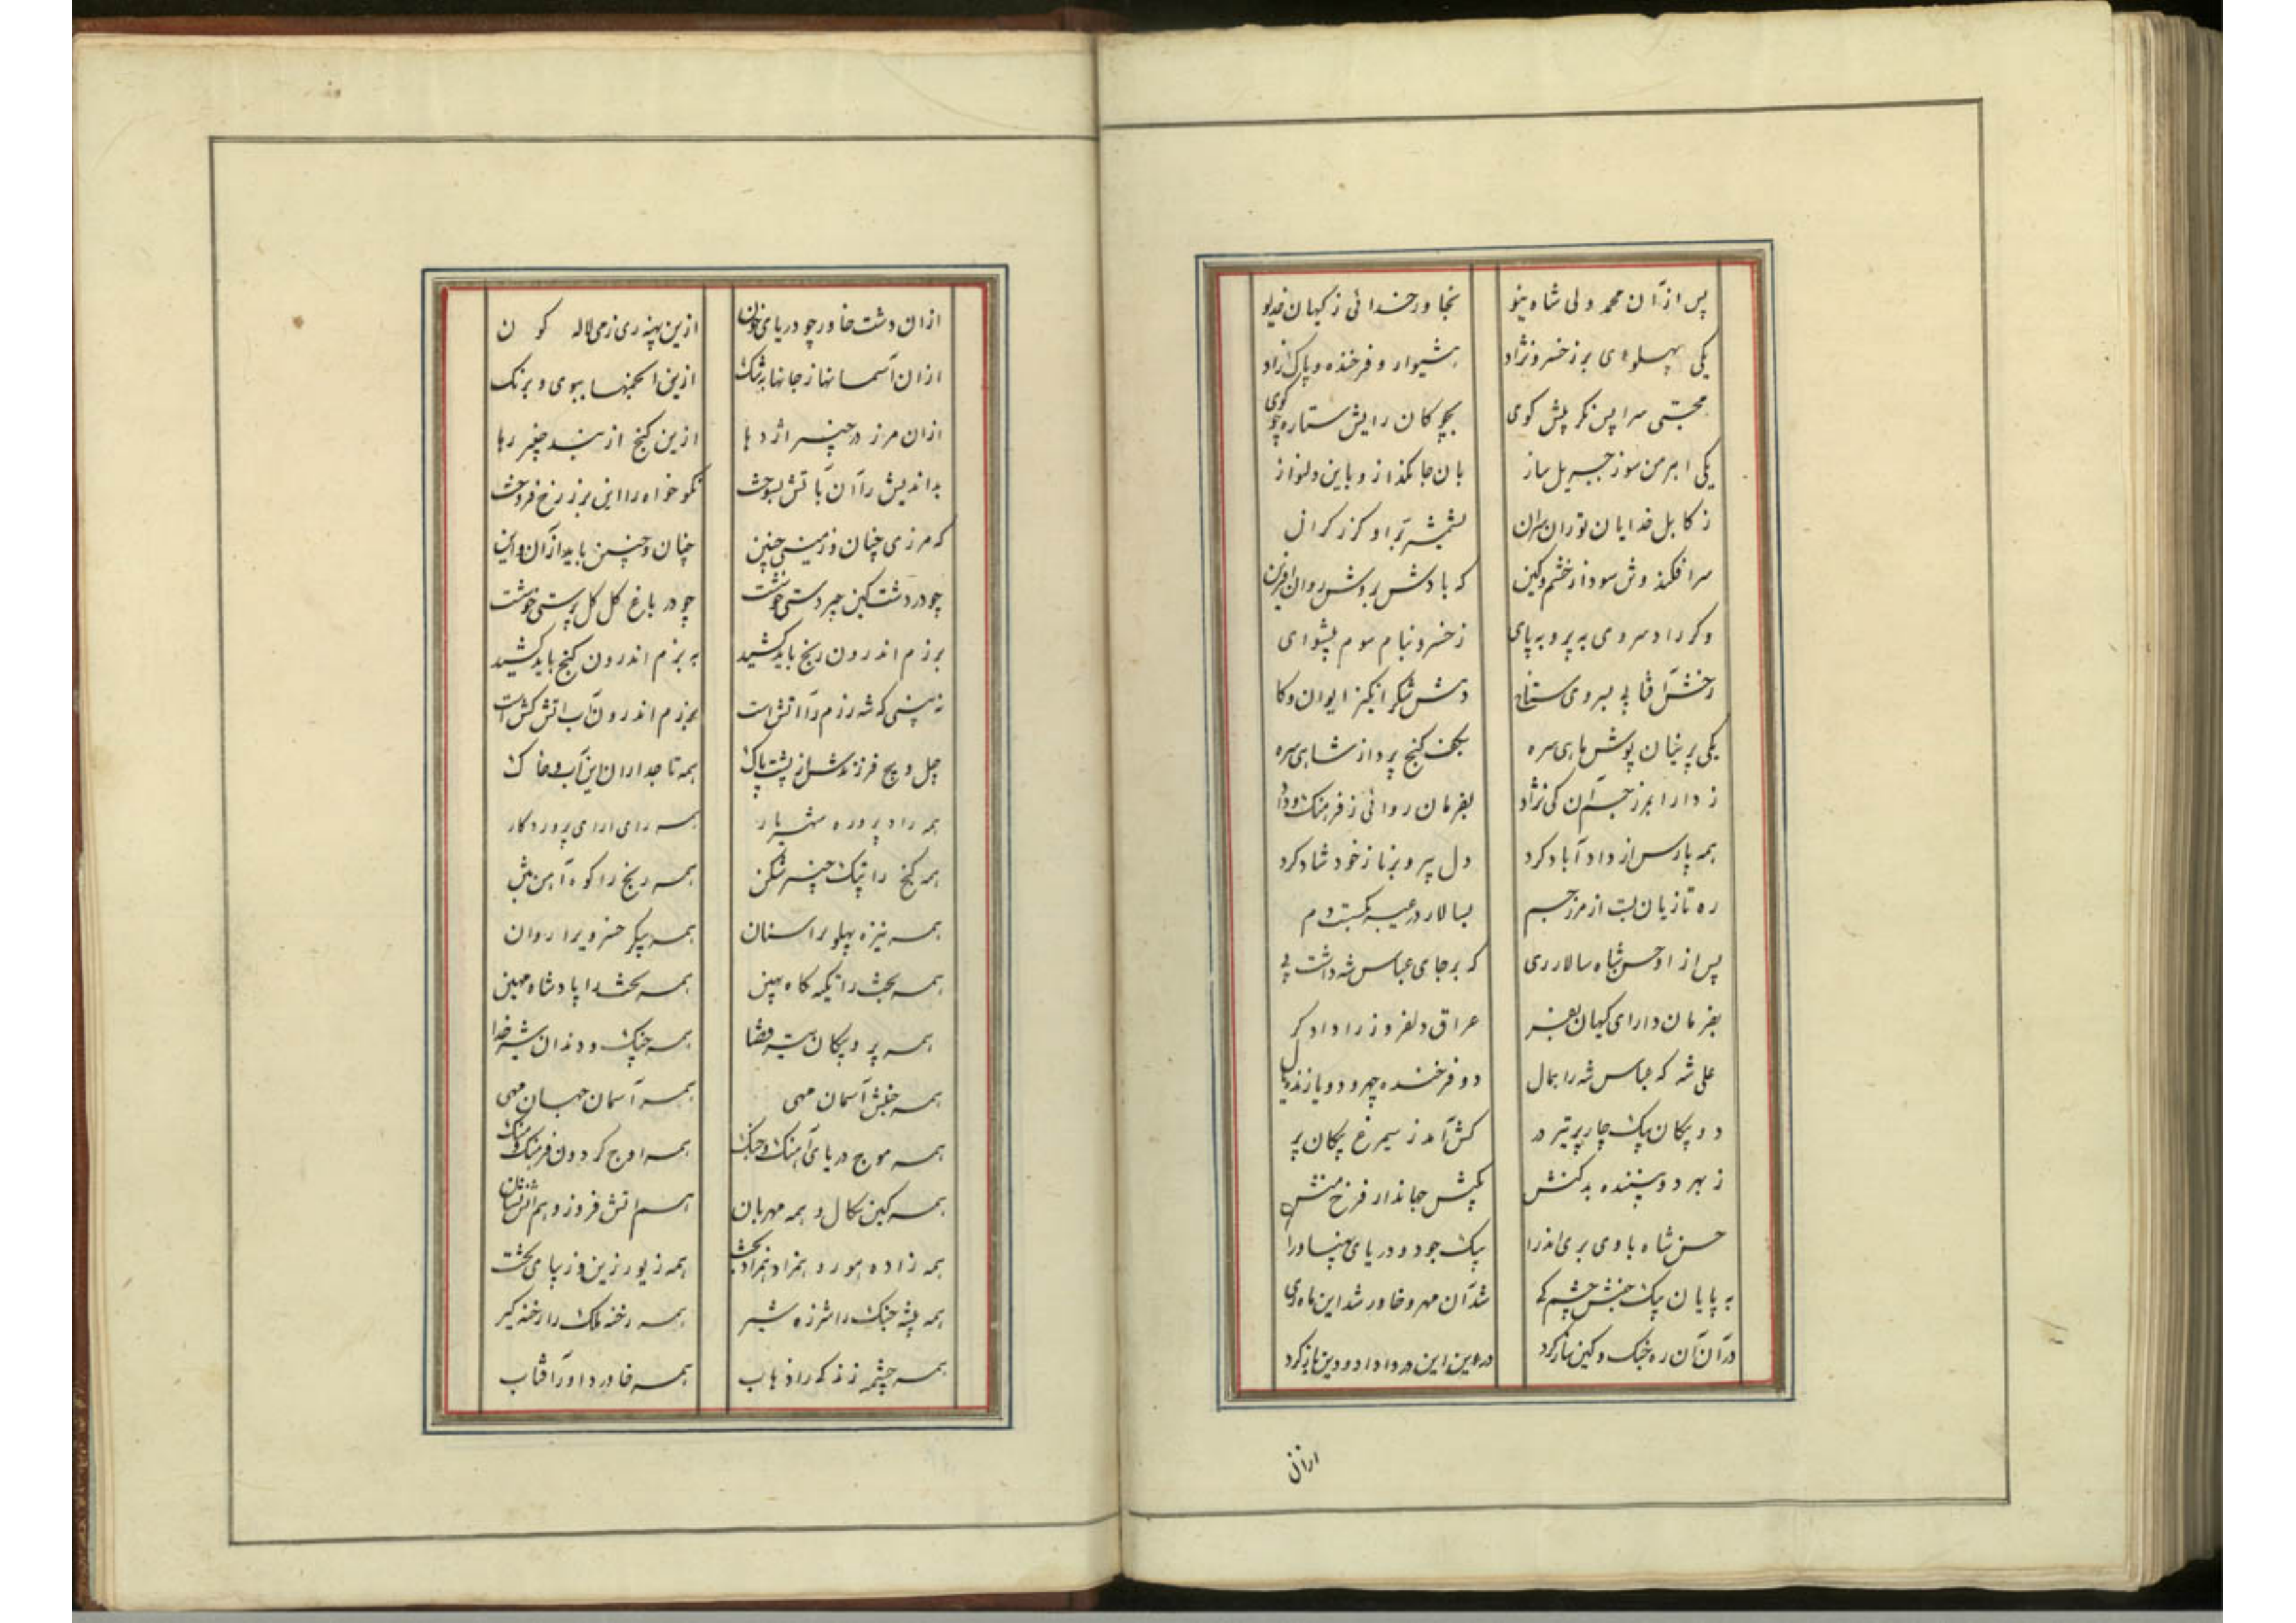 پس از آن محمد ولی شاه نیو بخاور خدائی ز کیهان خدیو
یکی پهلوی برز خسرو نژاد هشیوار و فرخنده و پاک زاد
سرا پس نکر پیش کوی کان رایش ستاره
یکی اهرمن سوز جبریل ساز بان جا نکداز و باین دلنواز
ز کابل خدایان توران سران بشمشیر تیز او کرز کران
سرافکند وش سود از خشم وکین که بادش بروشن روان افرین
وکر راد سروی به پر و به پای ز خسرو بنام سوم پیشوای
رخش آفتابی بسروی ستاخ دهش شکر انکیز ایوان وکا
یکی پرنیان پوش ماهی سره بکف کنج پرداز شاهی سره
ز دارا ابر کی نژاد بفرمان روائی ز فرهنک وداد
همه پارس از داد آباد کرد دل پیروبرنا ز خود شاد کرد
ره تازیان بست از مرز جم بسالار در
پس از او حسن شاه سالار ری که برجای عباس شه داشت پی
بفرمان دارای کیهان عراق دلفروز را داد کر
علی شه که عباس شه را همال دو فرخنده چهر و دو یا زنده یال
دو پیکان یک چار پر تیر در کش آمد ز سیمرغ پیکان پر
ز بهر دو بیننده بدکنش بکیش جهاندار فرخ منش
حسن شاه باوی بری اندرا بیک جو دو دریای پهناورا
به پایان یک جنبش چشم کی شد آن مهر و خاور شد این ماه ری
در آن آن ره جنک وکین ساز کرد درین این در داد و دین باز کرد
ازان
ازان دشت خاور چو دریای خون ازین پهنه ری زمی لاله کون
ازان آسمانها ز جانها به تنک ازین انجمنها ببوی و برنک
ازان مرز در چنبر اژدها ازین کنج از بند چنبر رها
بداندیش را آن بآتش بسوخت نکو خواه را این برز رخ فروخت
که مرزی چنان و زمینی چنین چنان و چنین باید از آن و این
چو در دشت کین چیر دستی خوشت چو در باغ کل کل پرستی خوشت
برزم اندرون رنج باید کشید به بزم اندرون کنج باید کشید
نه بینی که شه رزم را آتش است ببزم اندرون آب اتش کش است
چل و پنج فرزندش از پشت پاک همه تاجداران این آب و خاک
همه راد پرورده شهریار همه رای ارای پروردکار
همه کنج را نیک چنبر شکن همه رنج را کوه آهن
همه نیزه پهلو براسنان همه پیکر خسرویرا روان
همه تخت را تکیه کاه بهین همه بخشدا پادشاه مهین
همه پر و پیکان تیر قضا همه چنک و دندان شیر خدا
همه جنبش آسمان مهی همه آسمان جهان مهی
همه موج دریای آهنک و جنک همه اوج کردون فرهنک و سنک
همه کین سکال و همه مهربان همه اتش فروز و هم اتش نشان
همه زاده همه زیور زین و زیبای تخت
همه بیشه جنک را شرزه شیر همه رخنه ملک را رخنه کیر
همه چشمه زندکی را ذهاب همه خاور داور آفتاب